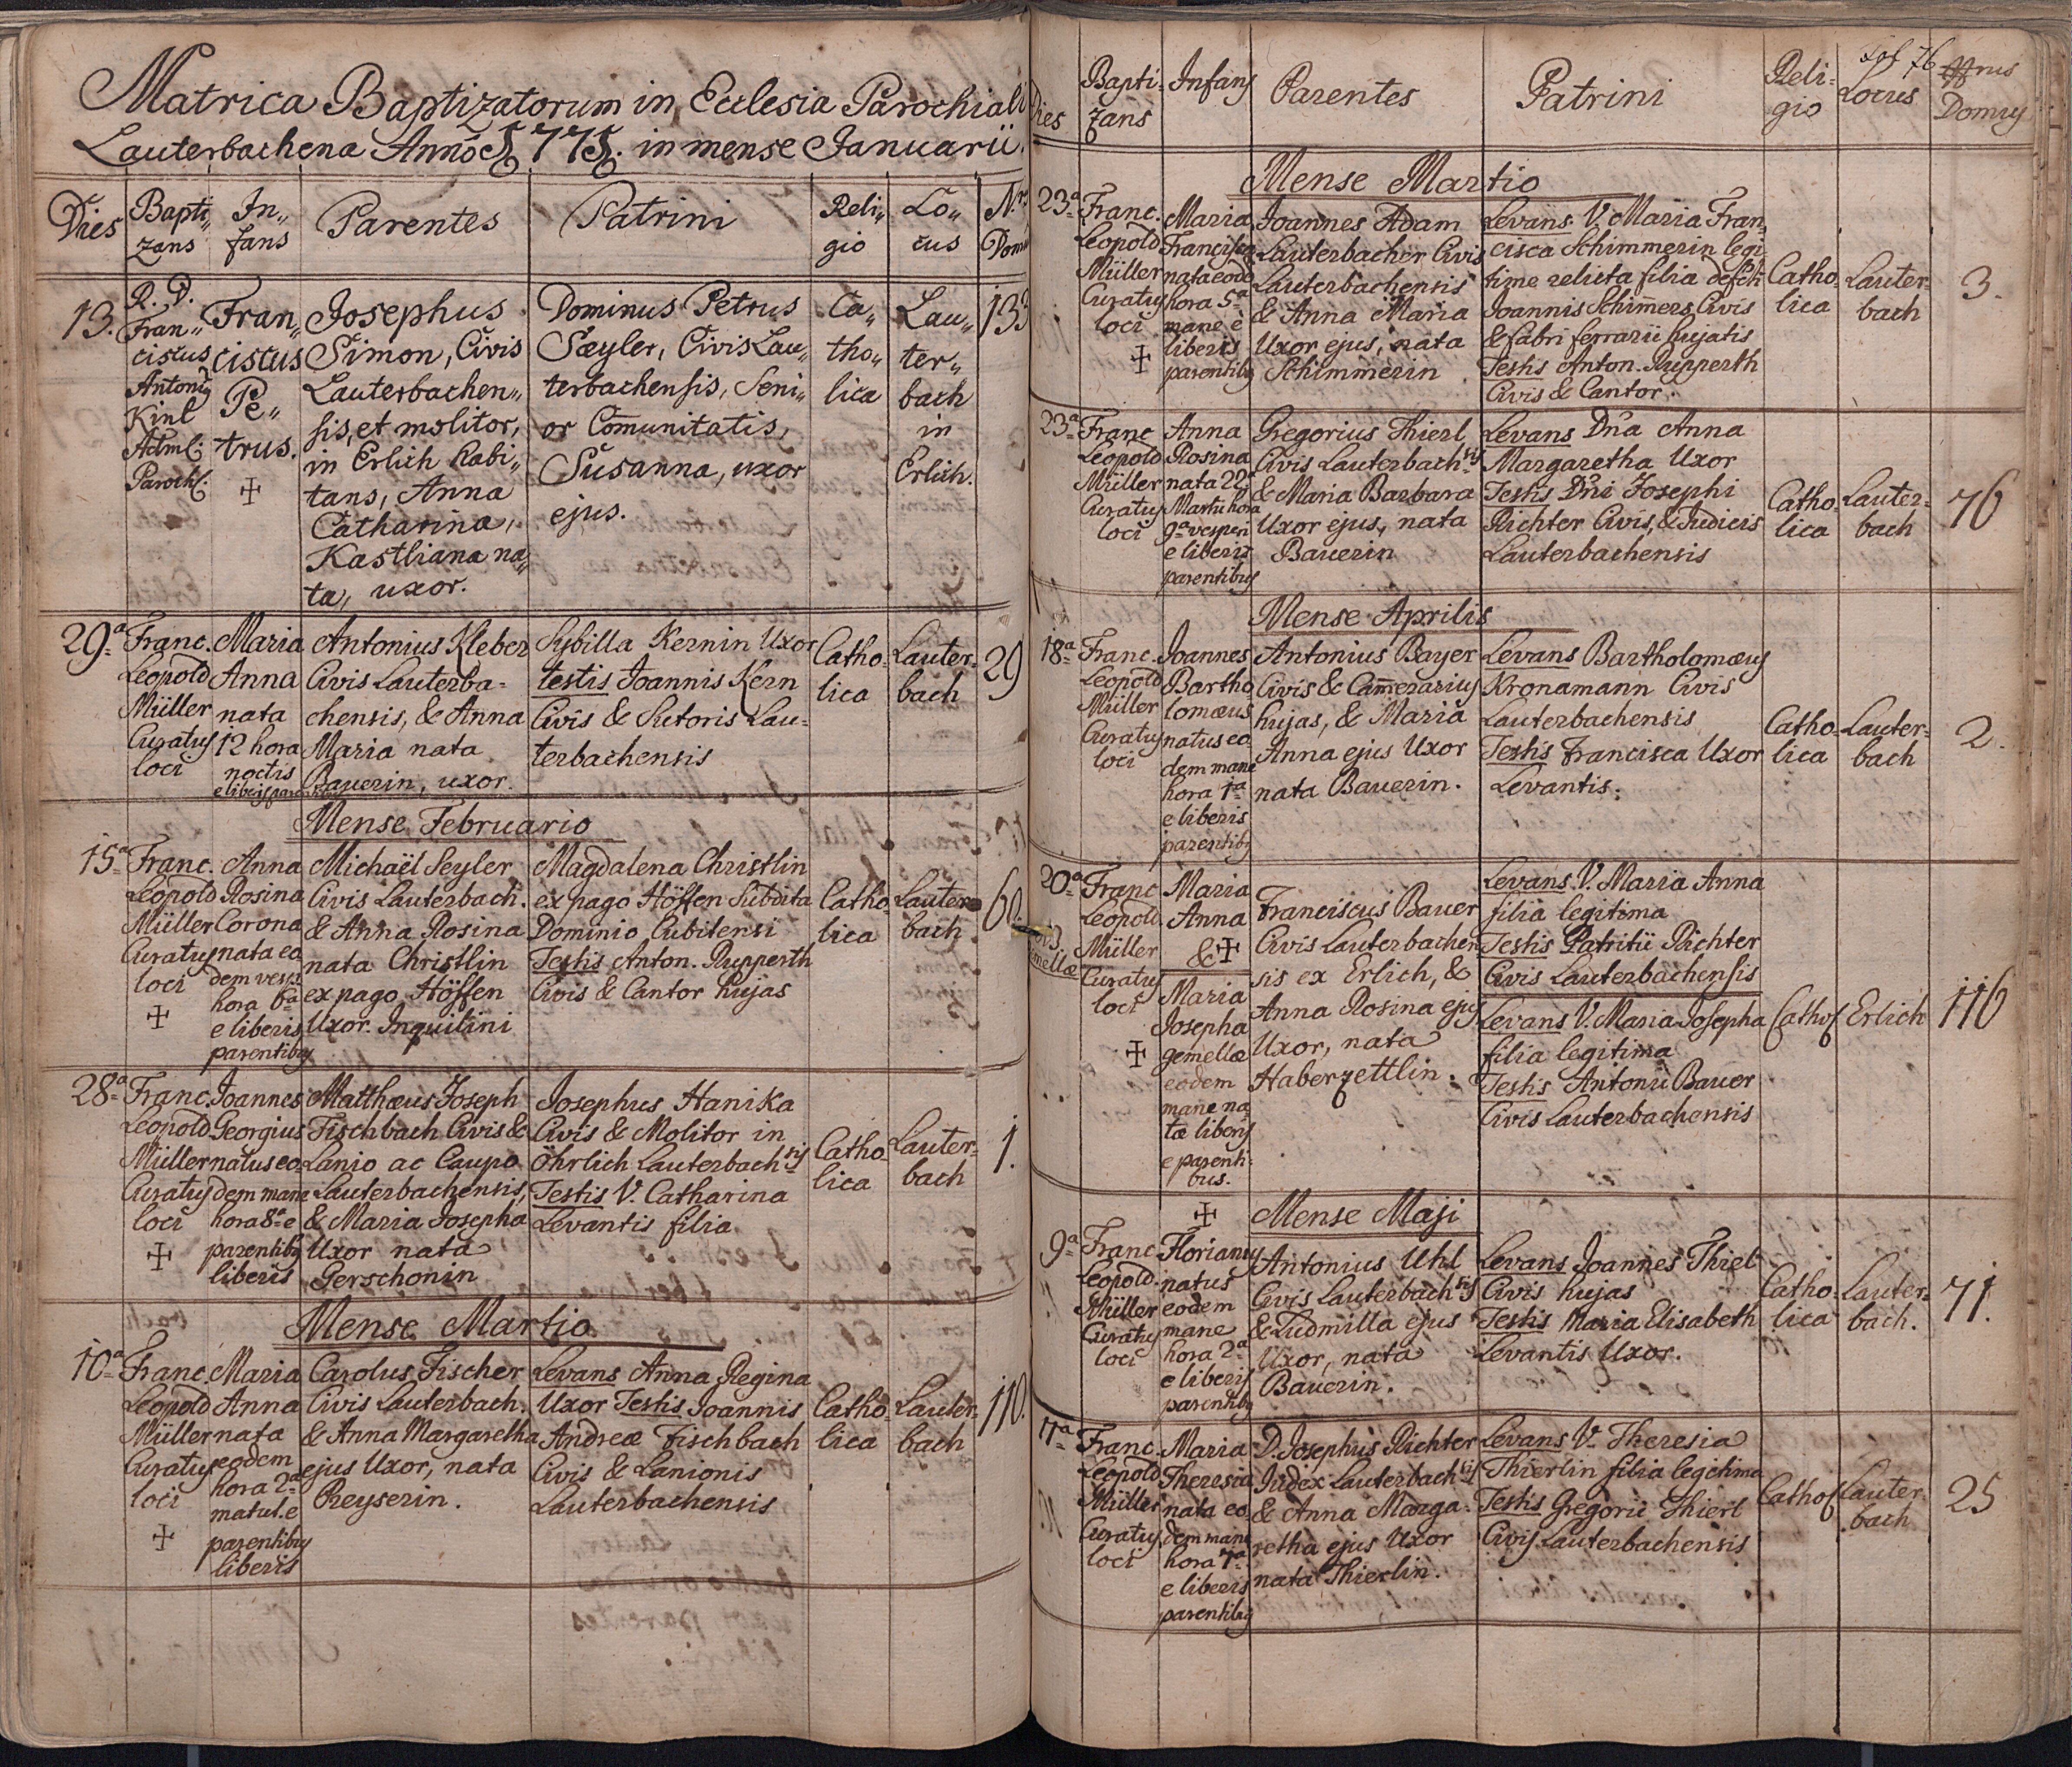 Matrica Baptizatorum in Ecclesia Parochiali
Lauterbachena Anno 1775. in mense Januarii.
Dies
Bapti„
zans
In„
fans
Parentes
Patrini
Reli„
gio
Lo„
cus
Nrs
Dom
13.
R. D.
Fran„
ciscus
Antoni9
Kinl
Adml:
Paroch:
Fran„
ciscus
Pe„
trus.
Josephus
Simon, Civis
Lauterbachen„
sis, et molitor,
in Erlich habi„
tans, Anna
Catharina,
Kastliana na„
ta, uxor.
Dominus Petrus
Sæyler, Civis Lau„
terbachensis, Seni„
or Comunitatis,
Susanna, uxor
ejus.
Ca„
tho„
lica
Lau„
ter„
bach
in
Erlich.
133
29a
Franc.
Leopold
Müller
Curatus
loci
Maria
Anna
nata
12 hora
noctis
Antonius Kleber
Civis Lauterba=
chensis, & Anna
Maria nata
Bauerin, uxor.
Sybilla Kernin Uxor
testis Joannis Kern
Civis & Sutoris Lau=
terbachensis
Catho=
lica
Lauter=
bach
29
Mense Februario
15a
Franc.
Leopold
Müller
Curatus
loci
Anna
Rosina
Corona
nata eo
dem vesp.
hora 6a
e liberis
parentibus
Michaël Seyler
Civis Lauterbach.
& Anna Rosina
nata Christlin
ex pago Höffen
Uxor. Inquilini
Magdalena Christlin
ex pago Höffen Subdita
Dominio Cubitensi
Testis Anton. Rupperth
Civis & Cantor hujas
Catho=
lica
Lauter=
bach
60.
28a
Franc.
Leopold
Müller
Curatus
loci
Joannes
Georgius
natus eo
dem mane
hora 8a e
parentibus
liberis
Matthæus Joseph
Fischbach Civis &
Lanio ac Caupo
Lauterbachensis,
& Maria Josepha
Uxor nata
Gerschonin
Josephus Hanika
Civis & Molitor in
Öhrlich Lauterbachsis
Testis V. Catharina
Levantis filia
Catho=
lica
Lauter=
bach
1.
Mense Martio
10a
Franc.
Leopold
Müller
Curatus
loci
Maria
Anna
nata
eodem
hora 2a
matut. e
parentibus
liberis
Carolus Fischer
Civis Lauterbach.
& Anna Margaretha
ejus Uxor, nata
Preyserin.
Levans Anna Regina
Uxor Testis Joannis
Andreæ Fischbach
Civis & Lanionis
Lauterbachensis
Catho=
lica
Lauter=
bach
110.
Dies
Bapti=
zans
Infans
Parentes
Patrini
Reli=
gio
fol 76
Locus
Nrus
Domus
Mense Martio
23a
Franc.
Leopold
Müller
Curatus
loci
Maria
Francisca
nata eode
hora 5a
mane e
liberis
parentibus
Joannes Adam
Lauterbacher Civis
Lauterbachensis
& Anna Maria
Uxor ejus, nata
Schimmerin
Levans V. Maria Fran
cisca Schimmerin legi
time relicta filia defcti
Joannis Schimers Civis
& fabri ferrarii hujatis
Testis Anton. Rupperth
Civis & Cantor.
Catho=
lica
Lauter=
bach
3.
23a
Franc
Leopold
Müller
Curatus
loci
Anna
Rosina
nata 22
Martii hora
9a vesperi
e liberis
parentibus
Gregorius Thierl
Civis Lauterbachsis
& Maria Barbara
Uxor ejus, nata
Bauerin
Levans Dna Anna
Margaretha Uxor
Testis Dni Josephi
Richter Civis, & Judicis
Lauterbachensis
Catho=
lica
Lauter=
bach
76
Mense Aprilis
18a
Franc.
Leopold
Müller
Curatus
loci
Joannes
Bartho
lomæus
natus eo
dem mane
hora 1a
e liberis
parentibus
Antonius Bayer
Civis & Camerarius
hujas, & Maria
Anna ejus Uxor
nata Bauerin.
Levans Bartholomæus
Kronamann Civis
Lauterbachensis
Testis Francisca Uxor
Levantis.
Catho=
lica
Lauter=
bach
2.
20a
Franc
Leopold
Müller
Curatus
loci
Maria
Anna
&
Maria
Josepha
gemellæ
eodem
mane na
tæ liberis
e parenti=
bus.
Franciscus Bauer
Civis Lauterbachen
sis ex Erlich, &
Anna Rosina ejus
Uxor, nata
Haberzettlin.
Levans V. Maria Anna
filia legitima
Testis Patritii Richter
Civis Lauterbachensis
Levans V. Maria Josepha
filia legitima
Testis Antonii Bauer
Civis Lauterbachensis
Cathol
Erlich
116
Mense Maji
9a
Franc
Leopold
Müller
Curatus
loci
Florianus
natus
eodem
mane
hora 2a
e liberis
parentibus
Antonius Uhl
Civis Lauterbachsis
& Ludmilla ejus
Uxor, nata
Bauerin.
Levans Joannes Thiel
Civis hujas
Testis Maria Elisabeth
Levantis Uxor.
Catho=
lica
Lauter=
bach.
71.
11a
Franc.
Leopold
Müller
Curatus
loci
Maria
Theresia
nata eo
dem mane
hora 7a
e liberis
parentibus
D. Josephus Richter
Judex Lauterbachsis
& Anna Marga=
retha ejus Uxor
nata Thierlin.
Levans V. Theresia
Thierlin filia legitima
Testis Gregorii Thierl
Civis Lauterbachensis
Cathol
Lauter=
bach
25